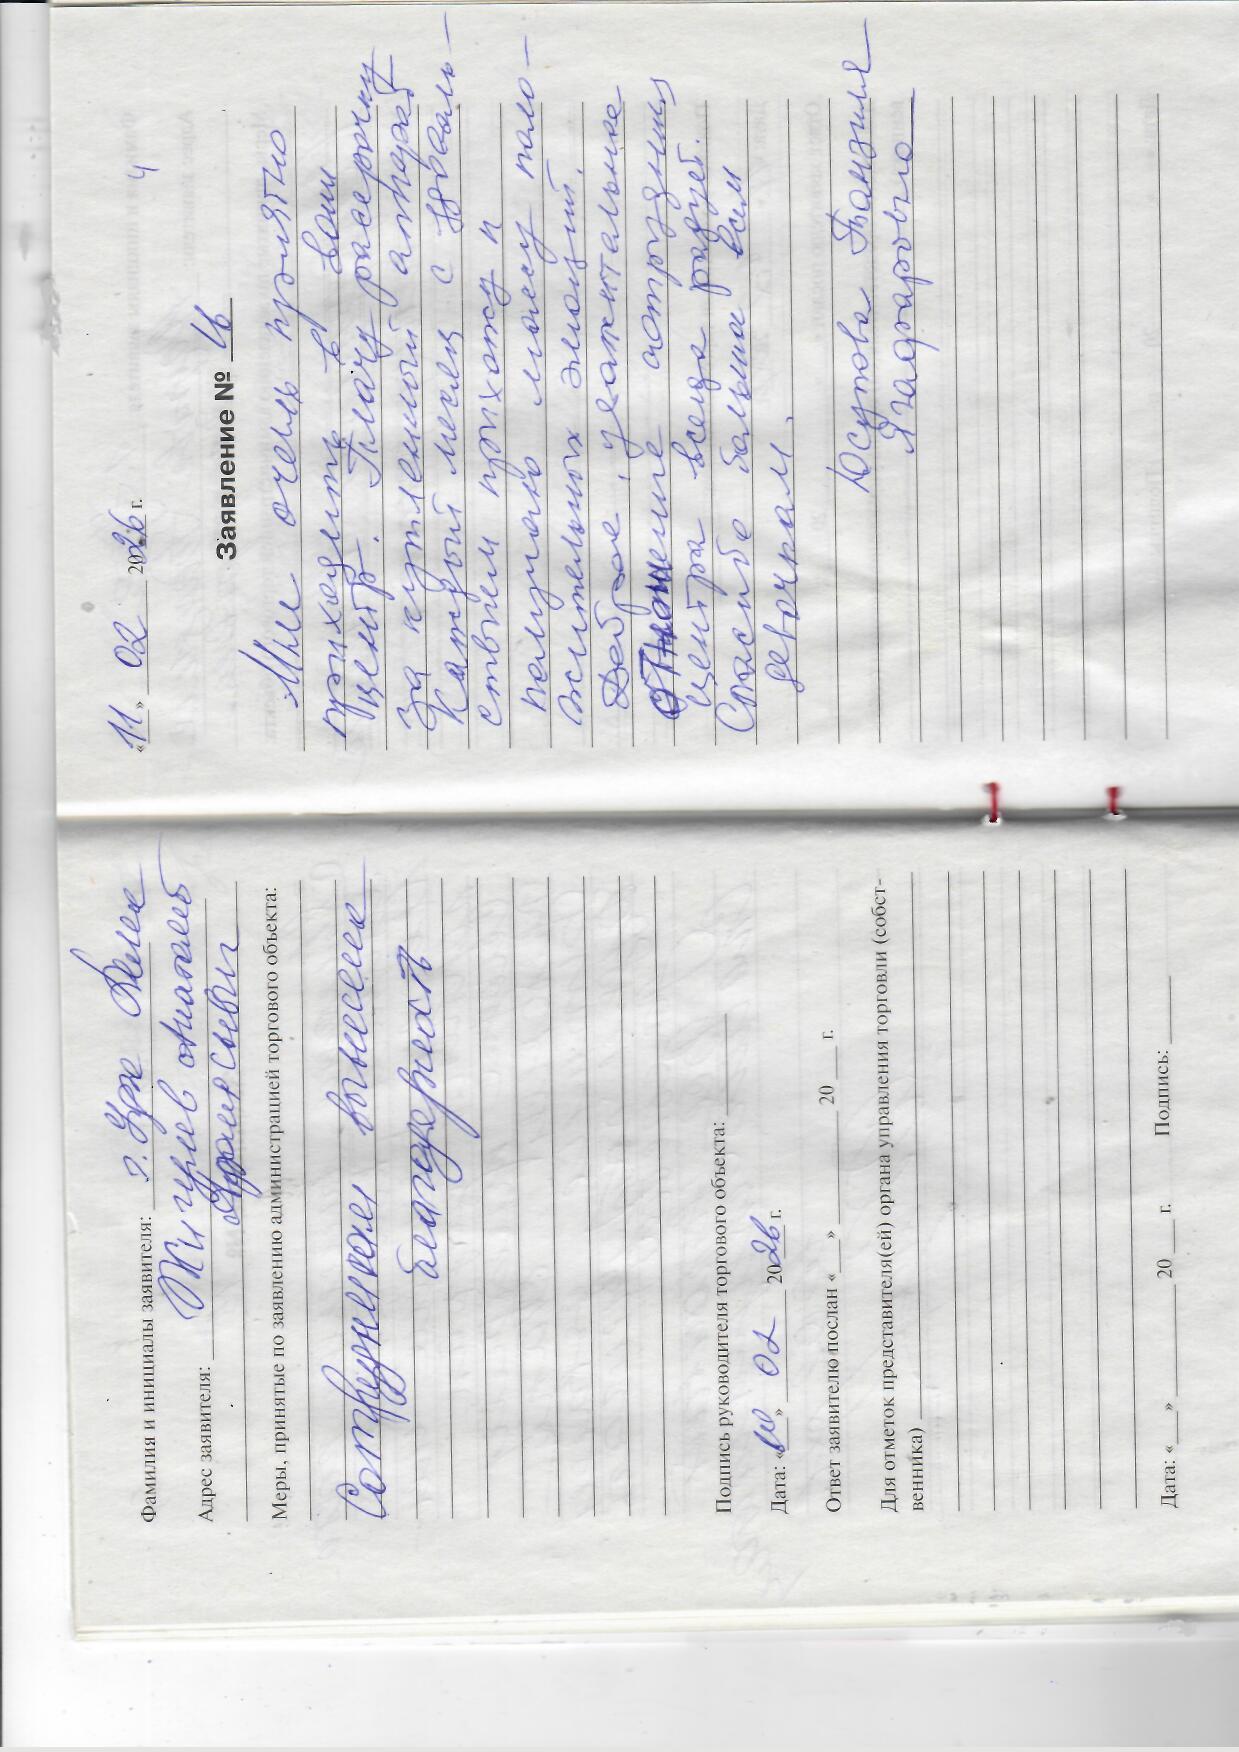 Фамилия и инициалы заявителя: г.
Жигулев
Адрес заявителя:
Меры, принятые по заявлению администрацией торгового объекта:
Сотруднику вынесена
благодарность
Подпись руководителя торгового объекта:
Дата: «10» 02 2026 г.
Ответ заявителю послан «___» ________ 20 ___ г.
Для отметок представителя(ей) органа управления торговли (собст-
венника)
Дата: «___» ________ 20 ___ г. Подпись:
4
«11» 02 2026 г.
Заявление № 16
Мне очень приятно
приходить в ваш
центр. Плачу рассрочку
за купленный аппарат
Каждый месяц с удоволь-
ствием прихожу и
получаю массу поло-
жительных эмоций.
Доброе, уважительное
отношение сотрудниц
центра всегда радует.
Спасибо больша всем
девочкам.
Юсупова Танзиля
Ягафаровна